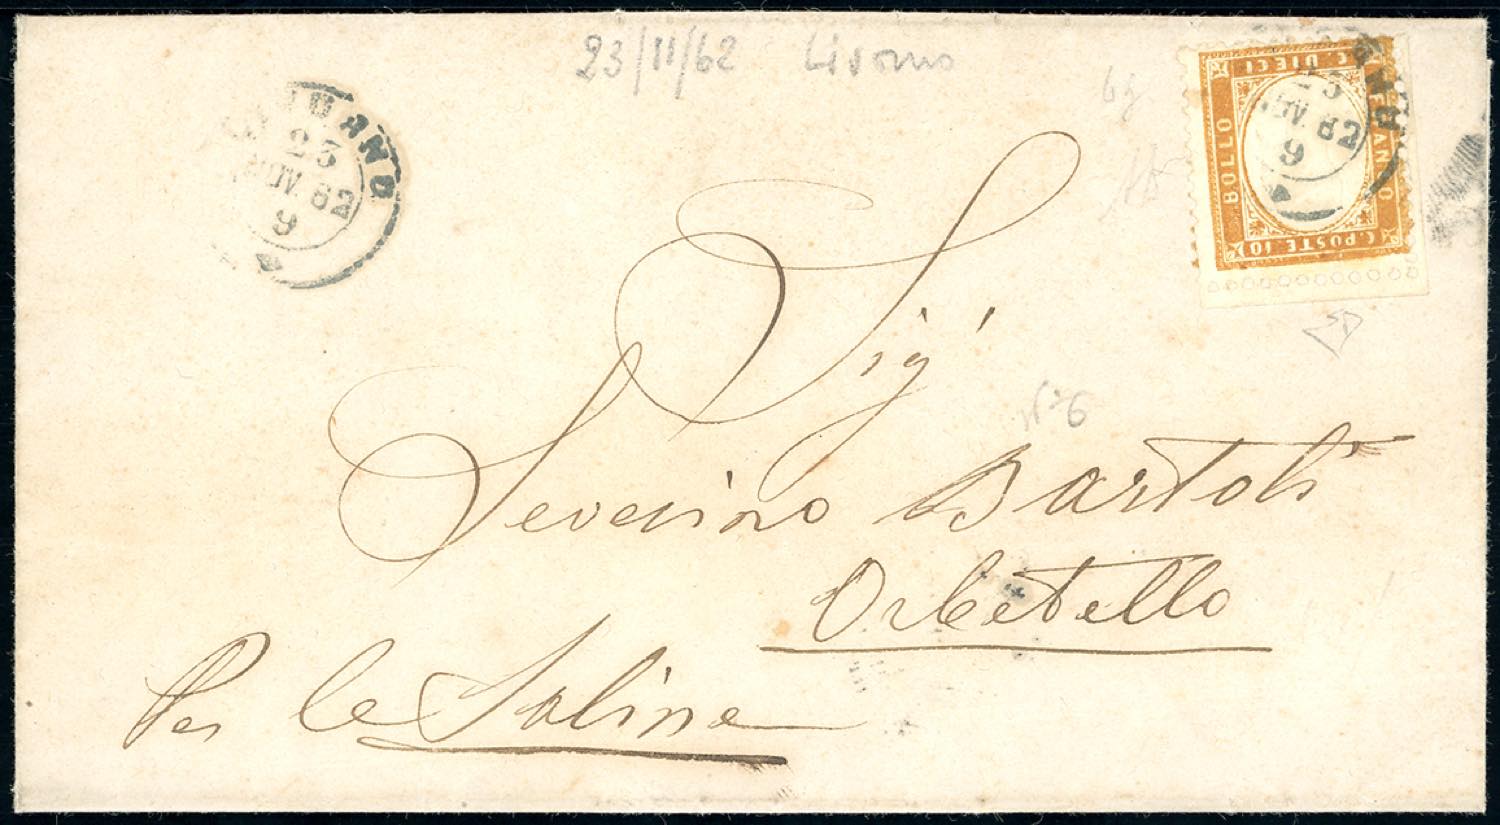 23/11/62
23
NOV. 62
9
C. DIECI
BOLLO
C. POSTE 10
23
NOV. 62
9
Sig.
Severino Bartoli
Orbetello
Per le Saline
N° 6